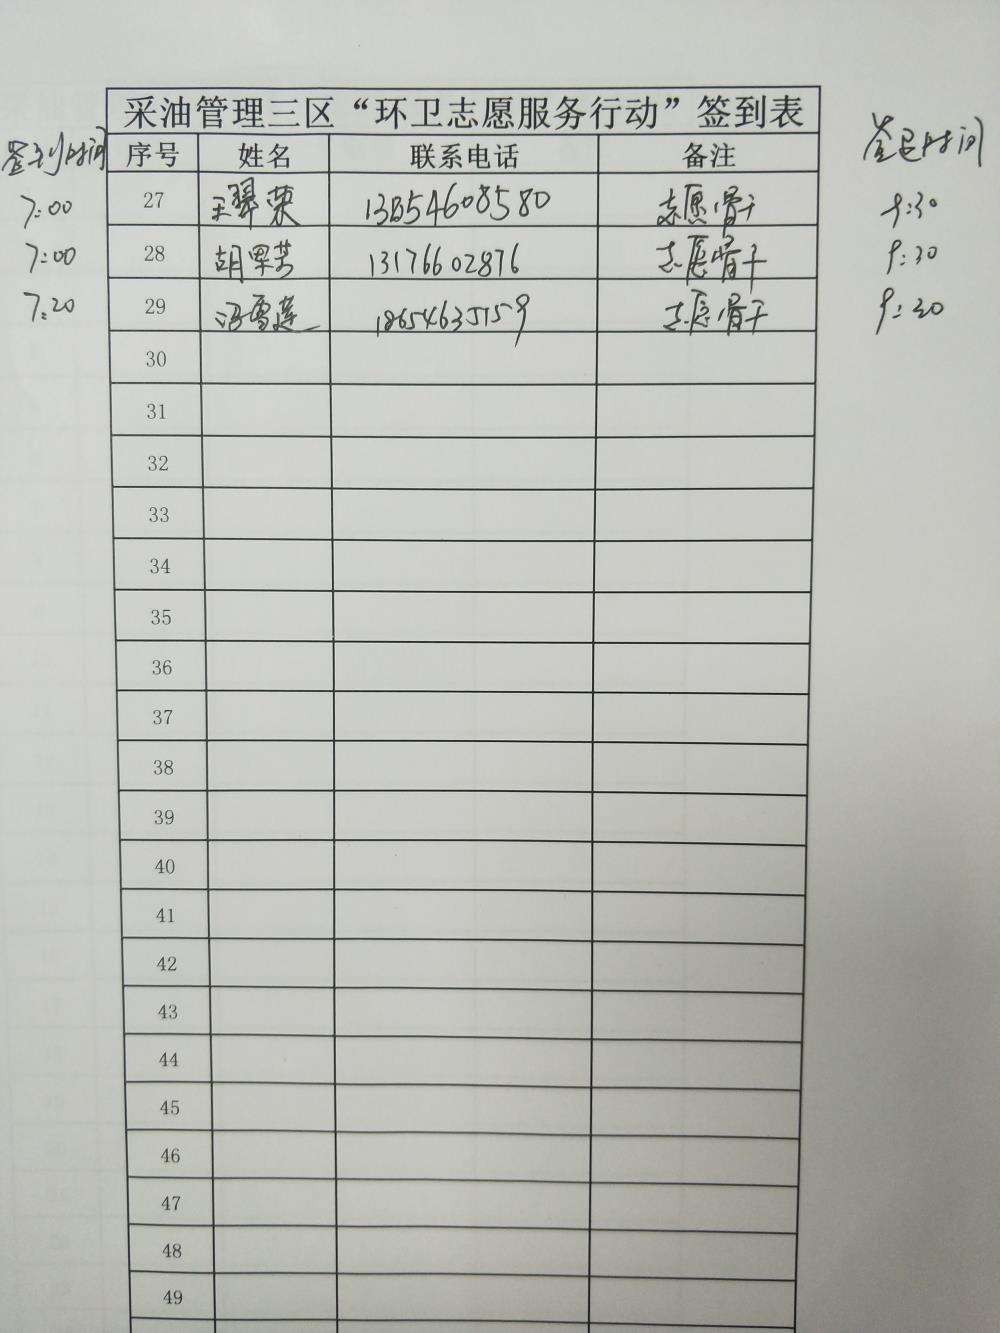 采油管理三区“环卫志愿服务行动”签到表
签到时间 序号 姓名 联系电话 备注 签退时间
7:00 27 王翠荣 志愿骨干 9:30
7:00 28 胡翠芳 13176602876 志愿骨干 9:30
7:20 29 冯雪莲 18654635159 志愿骨干 9:30
30
31
32
33
34
35
36
37
38
39
40
41
42
43
44
45
46
47
48
49